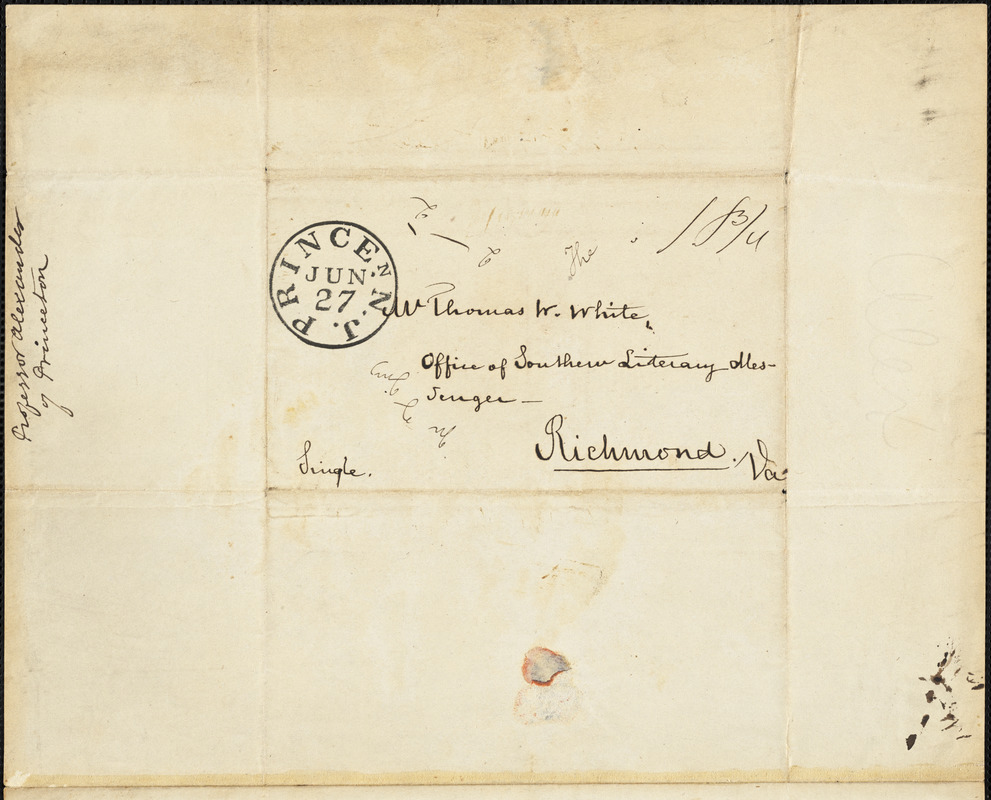 Professor Alexander
of Princeton
PRINCEN N.J.
JUN.
27
The
18¾
Mr Thomas W. White,
Office of Southern Literary Mes-
senger —
Richmond. Va
Single.